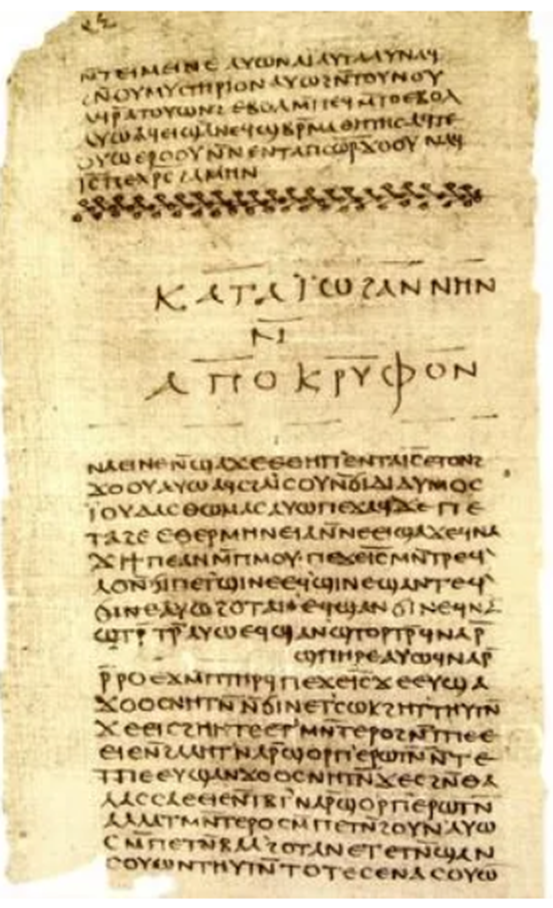 ⲛ̄ⲧⲉⲓⲙⲉⲓⲛⲉ ⲁⲩⲱ ⲛⲁⲓ ⲁⲩⲧⲁⲁⲩ ⲛⲁϥ
ϩⲛ̄ⲟⲩⲙⲩⲥⲧⲏⲣⲓⲟⲛ ⲁⲩⲱ ϩⲛ̄ⲧⲟⲩⲛⲟⲩ
ⲁϥⲣ̄ⲁⲧⲟⲩⲱⲛϩ ⲉⲃⲟⲗ ⲙ̄ⲡⲉϥⲙ̄ⲧⲟ ⲉⲃⲟⲗ
ⲁⲩⲱ ⲁϥⲉⲓ ϣⲁ ⲛⲉϥϣⲃⲣ̄ⲙⲁⲑⲏⲧⲏⲥ ⲁϥⲧⲉ
ⲟⲩⲱ ⲉⲣⲟⲟⲩ ⲛ̄ⲛⲉⲛⲧⲁⲡⲥⲱ̅ⲣ̅ ϫⲟⲟⲩ ⲛⲁϥ
ⲓ̅ⲥ̅ ⲡⲉⲭ̅ⲣ̅ⲥ̅ ϩⲁⲙⲏⲛ
ⲕⲁⲧⲁ ⲓ̈ⲱϩⲁⲛⲛⲏⲛ
ⲛ̄
ⲁⲡⲟⲕⲣⲩⲫⲟⲛ
ⲛⲁⲉⲓ ⲛⲉ ⲛ̄ϣⲁϫⲉ ⲉⲑⲏⲡ ⲉⲛⲧⲁⲓ̅ⲥ̅ ⲉⲧⲟⲛϩ
ϫⲟⲟⲩ ⲁⲩⲱ ⲁϥⲥϩⲁⲓ̈ⲥⲟⲩ ⲛ̄ϭⲓ ⲇⲓⲇⲩⲙⲟⲥ
ⲓ̈ⲟⲩⲇⲁⲥ ⲑⲱⲙⲁⲥ ⲁⲩⲱ ⲡⲉϫⲁϥ ϫⲉ ⲡⲉ
ⲧⲁϩⲉ ⲉⲑⲉⲣⲙⲏⲛⲉⲓⲁ ⲛ̄ⲛⲉⲉⲓϣⲁϫⲉ ϥⲛⲁ
ϫⲓ ϯⲡⲉ ⲁⲛ ⲙ̄ⲡⲙⲟⲩ ⲡⲉϫⲉ ⲓ̅ⲥ̅ ⲙⲛ̄ⲧⲣⲉϥ
ⲗⲟ ⲛ̄ϭⲓ ⲡⲉⲧϣⲓⲛⲉ ⲉϥϣⲓⲛⲉ ϣⲁⲛⲧⲉϥ
ϭⲓⲛⲉ ⲁⲩⲱ ϩⲟⲧⲁⲛ ⲉϥϣⲁⲛϭⲓⲛⲉ ϥⲛⲁ
ϣⲧⲣ̄ⲧⲣ̄ ⲁⲩⲱ ⲉϥϣⲁⲛϣⲧⲟⲣⲧⲣ̄ ϥⲛⲁⲣ̄
ϣⲡⲏⲣⲉ ⲁⲩⲱ ϥⲛⲁⲣ̄
ⲣ̄ⲣⲟ ⲉϫⲙ̄ ⲡⲧⲏⲣϥ ⲡⲉϫⲉ ⲓ̅ⲥ̅ ϫⲉ ⲉⲩϣⲁ
ϫⲟⲟⲥ ⲛⲏⲧⲛ̄ ⲛ̄ϭⲓ ⲛⲉⲧⲥⲱⲕ ϩⲏⲧ ⲑⲏⲩⲧⲛ̄
ϫⲉ ⲉⲓⲥϩⲏⲏⲧⲉ ⲉⲧⲙⲛ̄ⲧⲉⲣⲟ ϩⲛ̄ ⲧⲡⲉ
ⲉⲉⲓⲉ ⲛ̄ϩⲁⲗⲏⲧ ⲛⲁⲣ̄ ϣⲟⲣⲡ ⲉⲣⲱⲧⲛ̄ ⲛ̄ⲧⲉ
ⲧⲡⲉ ⲉⲩϣⲁⲛϫⲟⲟⲥ ⲛⲏⲧⲛ̄ ϫⲉ ⲥϩⲛ̄ ⲑⲁ
ⲗⲁⲥⲥⲁ ⲉⲉⲓⲉ ⲛ̄ⲧⲃⲧ ⲛⲁⲣ̄ ϣⲟⲣⲡ ⲉⲣⲱⲧⲛ̄
ⲁⲗⲗⲁ ⲧⲙⲛ̄ⲧⲉⲣⲟ ⲥⲙ̄ⲡⲉⲧⲛ̄ϩⲟⲩⲛ ⲁⲩⲱ
ⲥⲙ̄ⲡⲉⲧⲛ̄ⲃⲁⲗ ϩⲟⲧⲁⲛ ⲉⲧⲉⲧⲛ̄ϣⲁⲛ
ⲥⲟⲩⲱⲛ ⲧⲏⲩⲧⲛ̄ ⲧⲟⲧⲉ ⲥⲉⲛⲁⲥⲟⲩⲱ